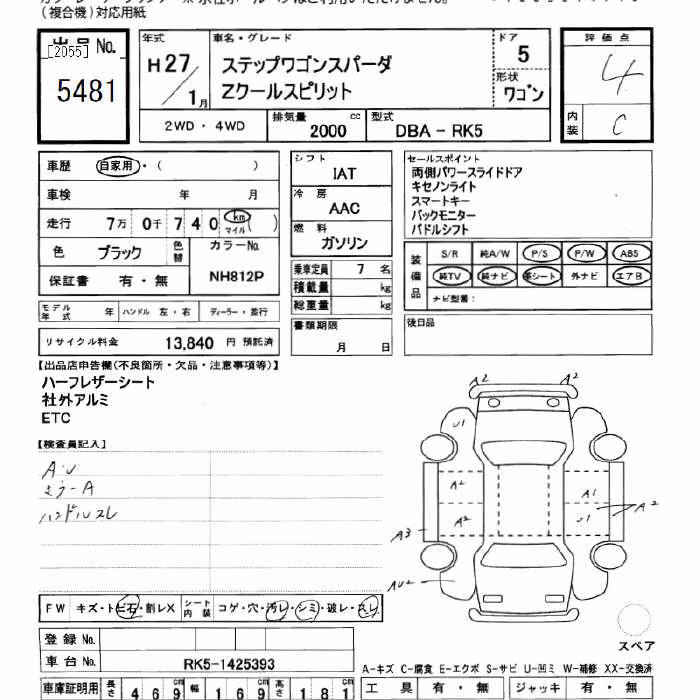 (複合機)対応用紙
出品No.
[2055]
5481
年式
H27/1月
車名・グレード
ステップワゴンスパーダ
Zクールスピリット
ドア
5
形状
ワゴン
評価点
4
内装
C
2WD・4WD
排気量
2000 cc
型式
DBA-RK5
車歴 自家用・( )
車検 年 月
走行 7万 0千 7 4 0 km マイル ( )
色 ブラック 色替 カラーNo.
保証書 有・無 NH812P
シフト
IAT
冷房
AAC
燃料
ガソリン
乗車定員 7 名
積載量 kg
総重量 kg
書類期限
月 日
セールスポイント
両側パワースライドドア
キセノンライト
スマートキー
バックモニター
パドルシフト
装備品
S/R 純A/W P/S P/W ABS
純TV 純ナビ 革シート 外ナビ エアB
ナビ型番:
後日品
モデル年式 年 ハンドル 左・右 ディーラー・並行
リサイクル料金 13,840 円 預託済
【出品店申告欄(不良箇所・欠品・注意事項等)】
ハーフレザーシート
社外アルミ
ETC
【検査員記入】
A・U
ミラーA
ハンドルスレ
A2 A2
U1
A2 A1
A2 U1 A2
A3
AU2
FW キズ・トビ石・割レX シート内装 コゲ・穴・汚レ・シミ・破レ・スレ
登録No.
車台No. RK5-1425393
スペア
A-キズ C-腐食 E-エクボ S-サビ U-凹ミ W-補修 XX-交換済
車庫証明用 長さ 469 幅 169 高さ 181
工具 有・無 ジャッキ 有・無